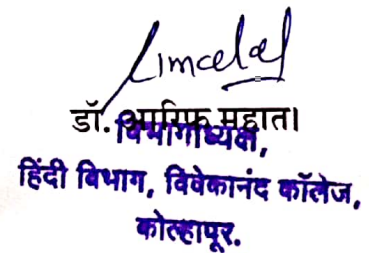 डॉ. आरिफ महात।
विभागाध्यक्ष,
हिंदी विभाग, विवेकानंद कॉलेज,
कोल्हापूर.